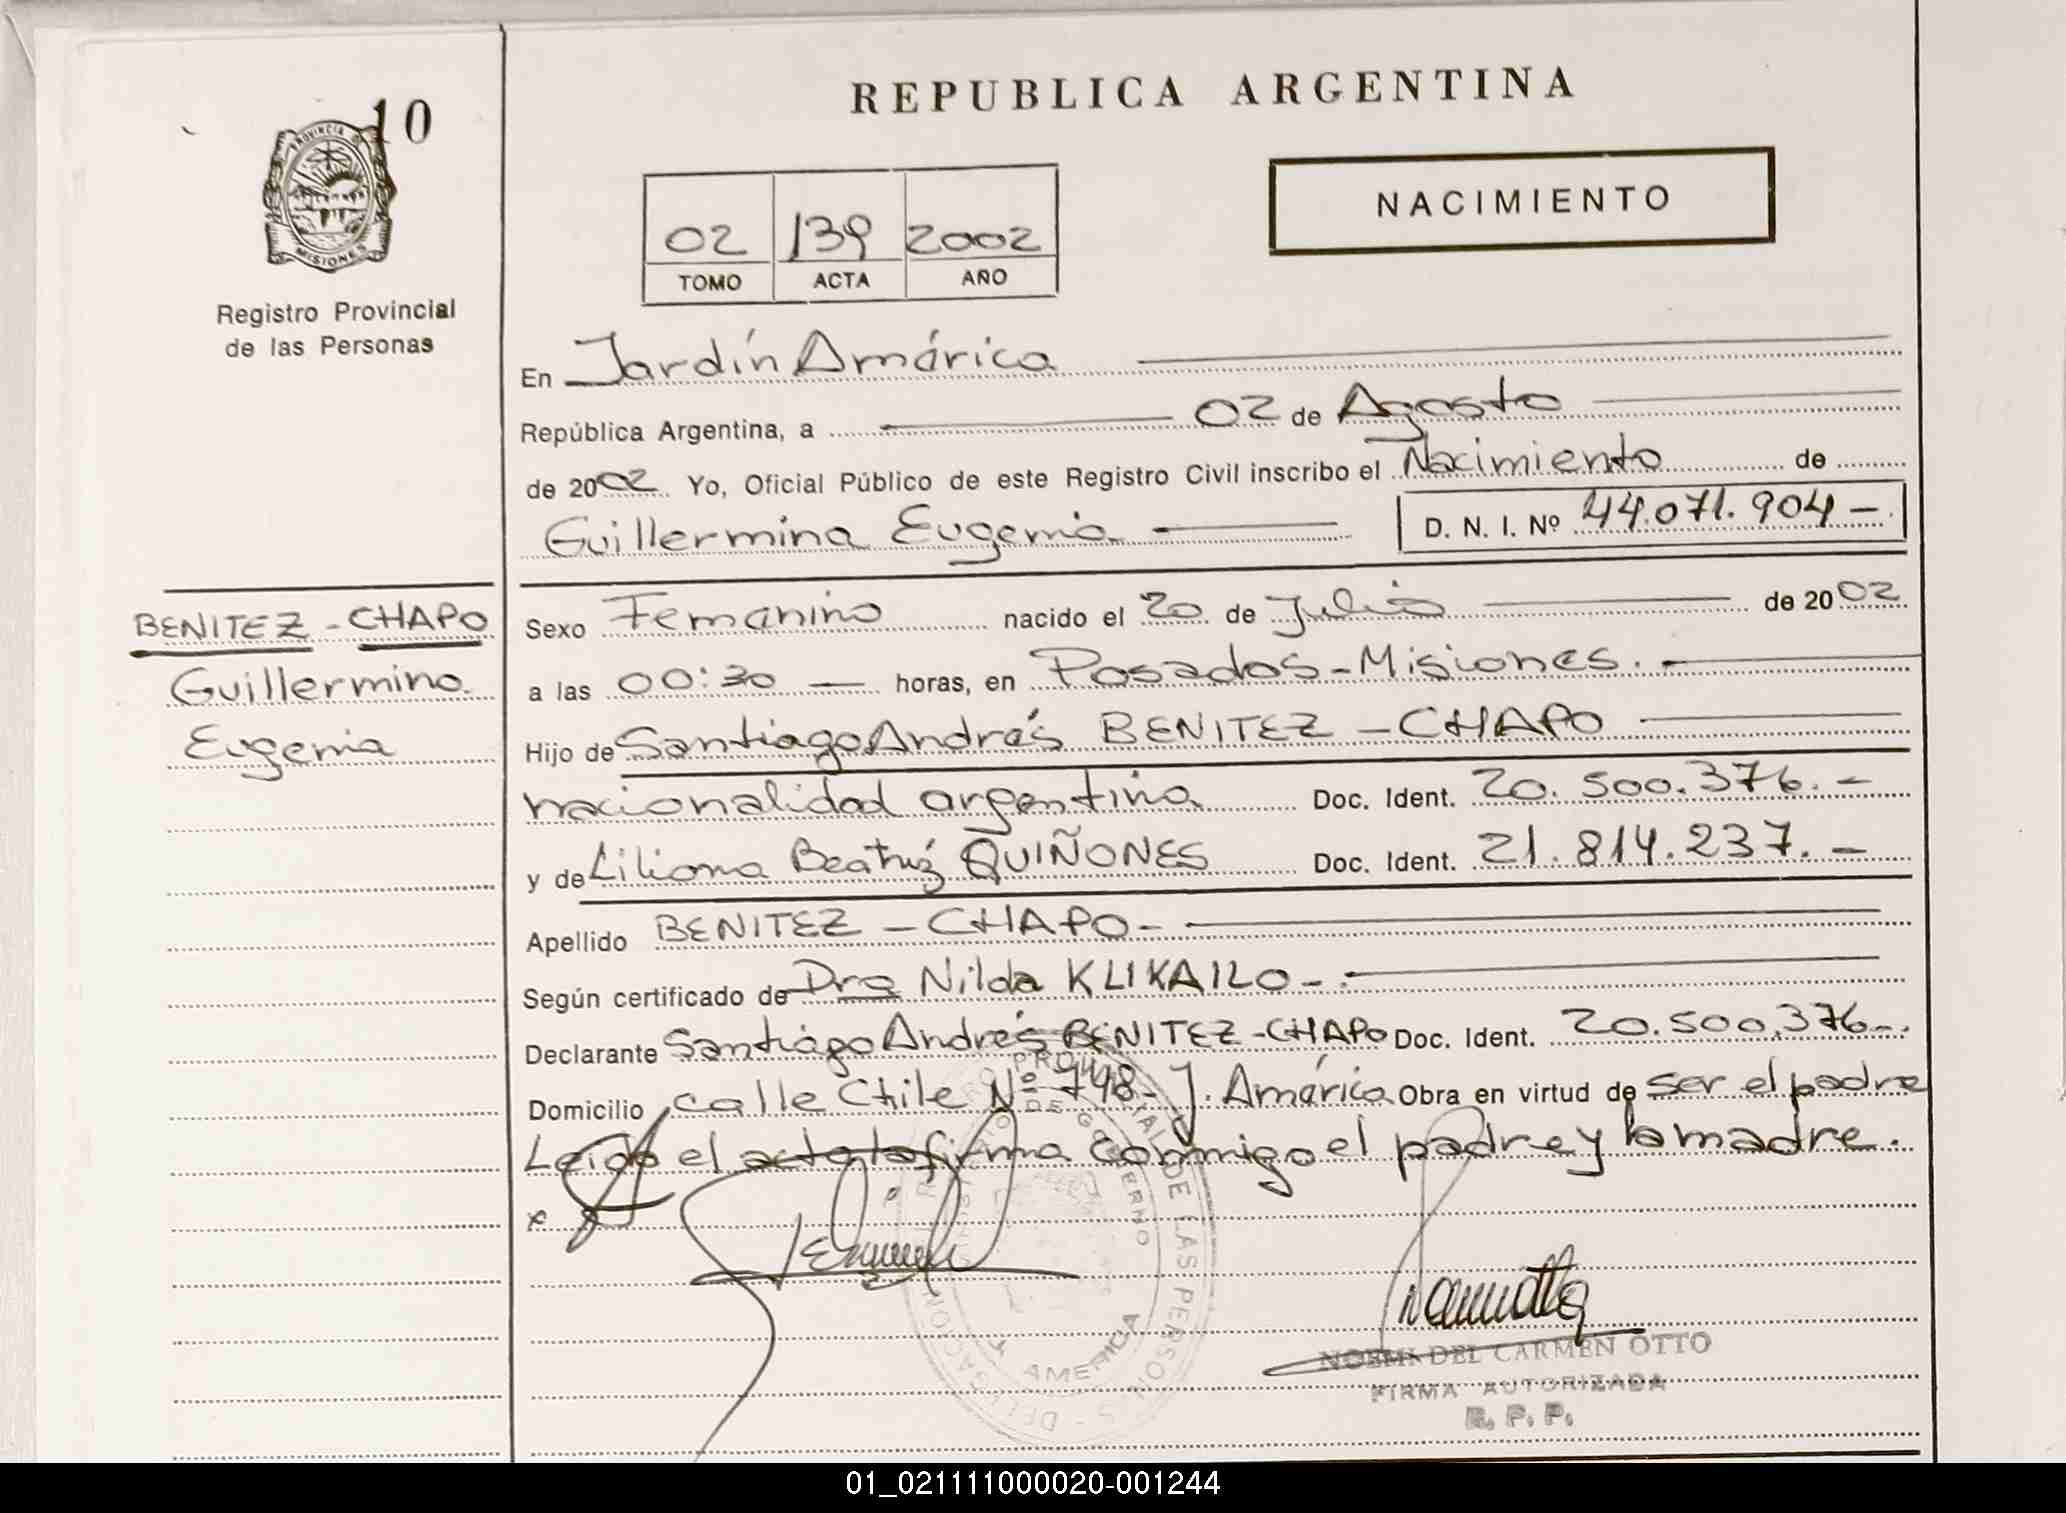 10
PROVINCIA DE
MISIONES
Registro Provincial
de las Personas
REPUBLICA ARGENTINA
NACIMIENTO
02 139 2002
TOMO ACTA AÑO
En Jardín América
República Argentina, a 02 de Agosto
de 2002 Yo, Oficial Público de este Registro Civil inscribo el Nacimiento de
Guillermina Eugenia D. N. I. Nº 44.071.904-
BENITEZ - CHAPO
Guillermina
Eugenia
Sexo Femenino nacido el 20 de Julio de 2002
a las 00:30 horas, en Posadas-Misiones.
Hijo de Santiago Andrés BENITEZ - CHAPO
nacionalidad argentina Doc. Ident. 20.500.376.-
y de Liliana Beatriz QUIÑONES Doc. Ident. 21.814.237.-
Apellido BENITEZ - CHAPO-
Según certificado de Dra Nilda KLIKAILO-.
Declarante Santiago Andrés BENITEZ-CHAPO Doc. Ident. 20.500.376-.
Domicilio calle Chile Nº 948- J. América Obra en virtud de ser el padre
Leida el acta la firma conmigo el padre y la madre.
DE GOBIERNO
DE LAS PERSONAS - DELEGACION
AMERICA
NOEMI DEL CARMEN OTTO
FIRMA AUTORIZADA
R. P. P.
01_021111000020-001244